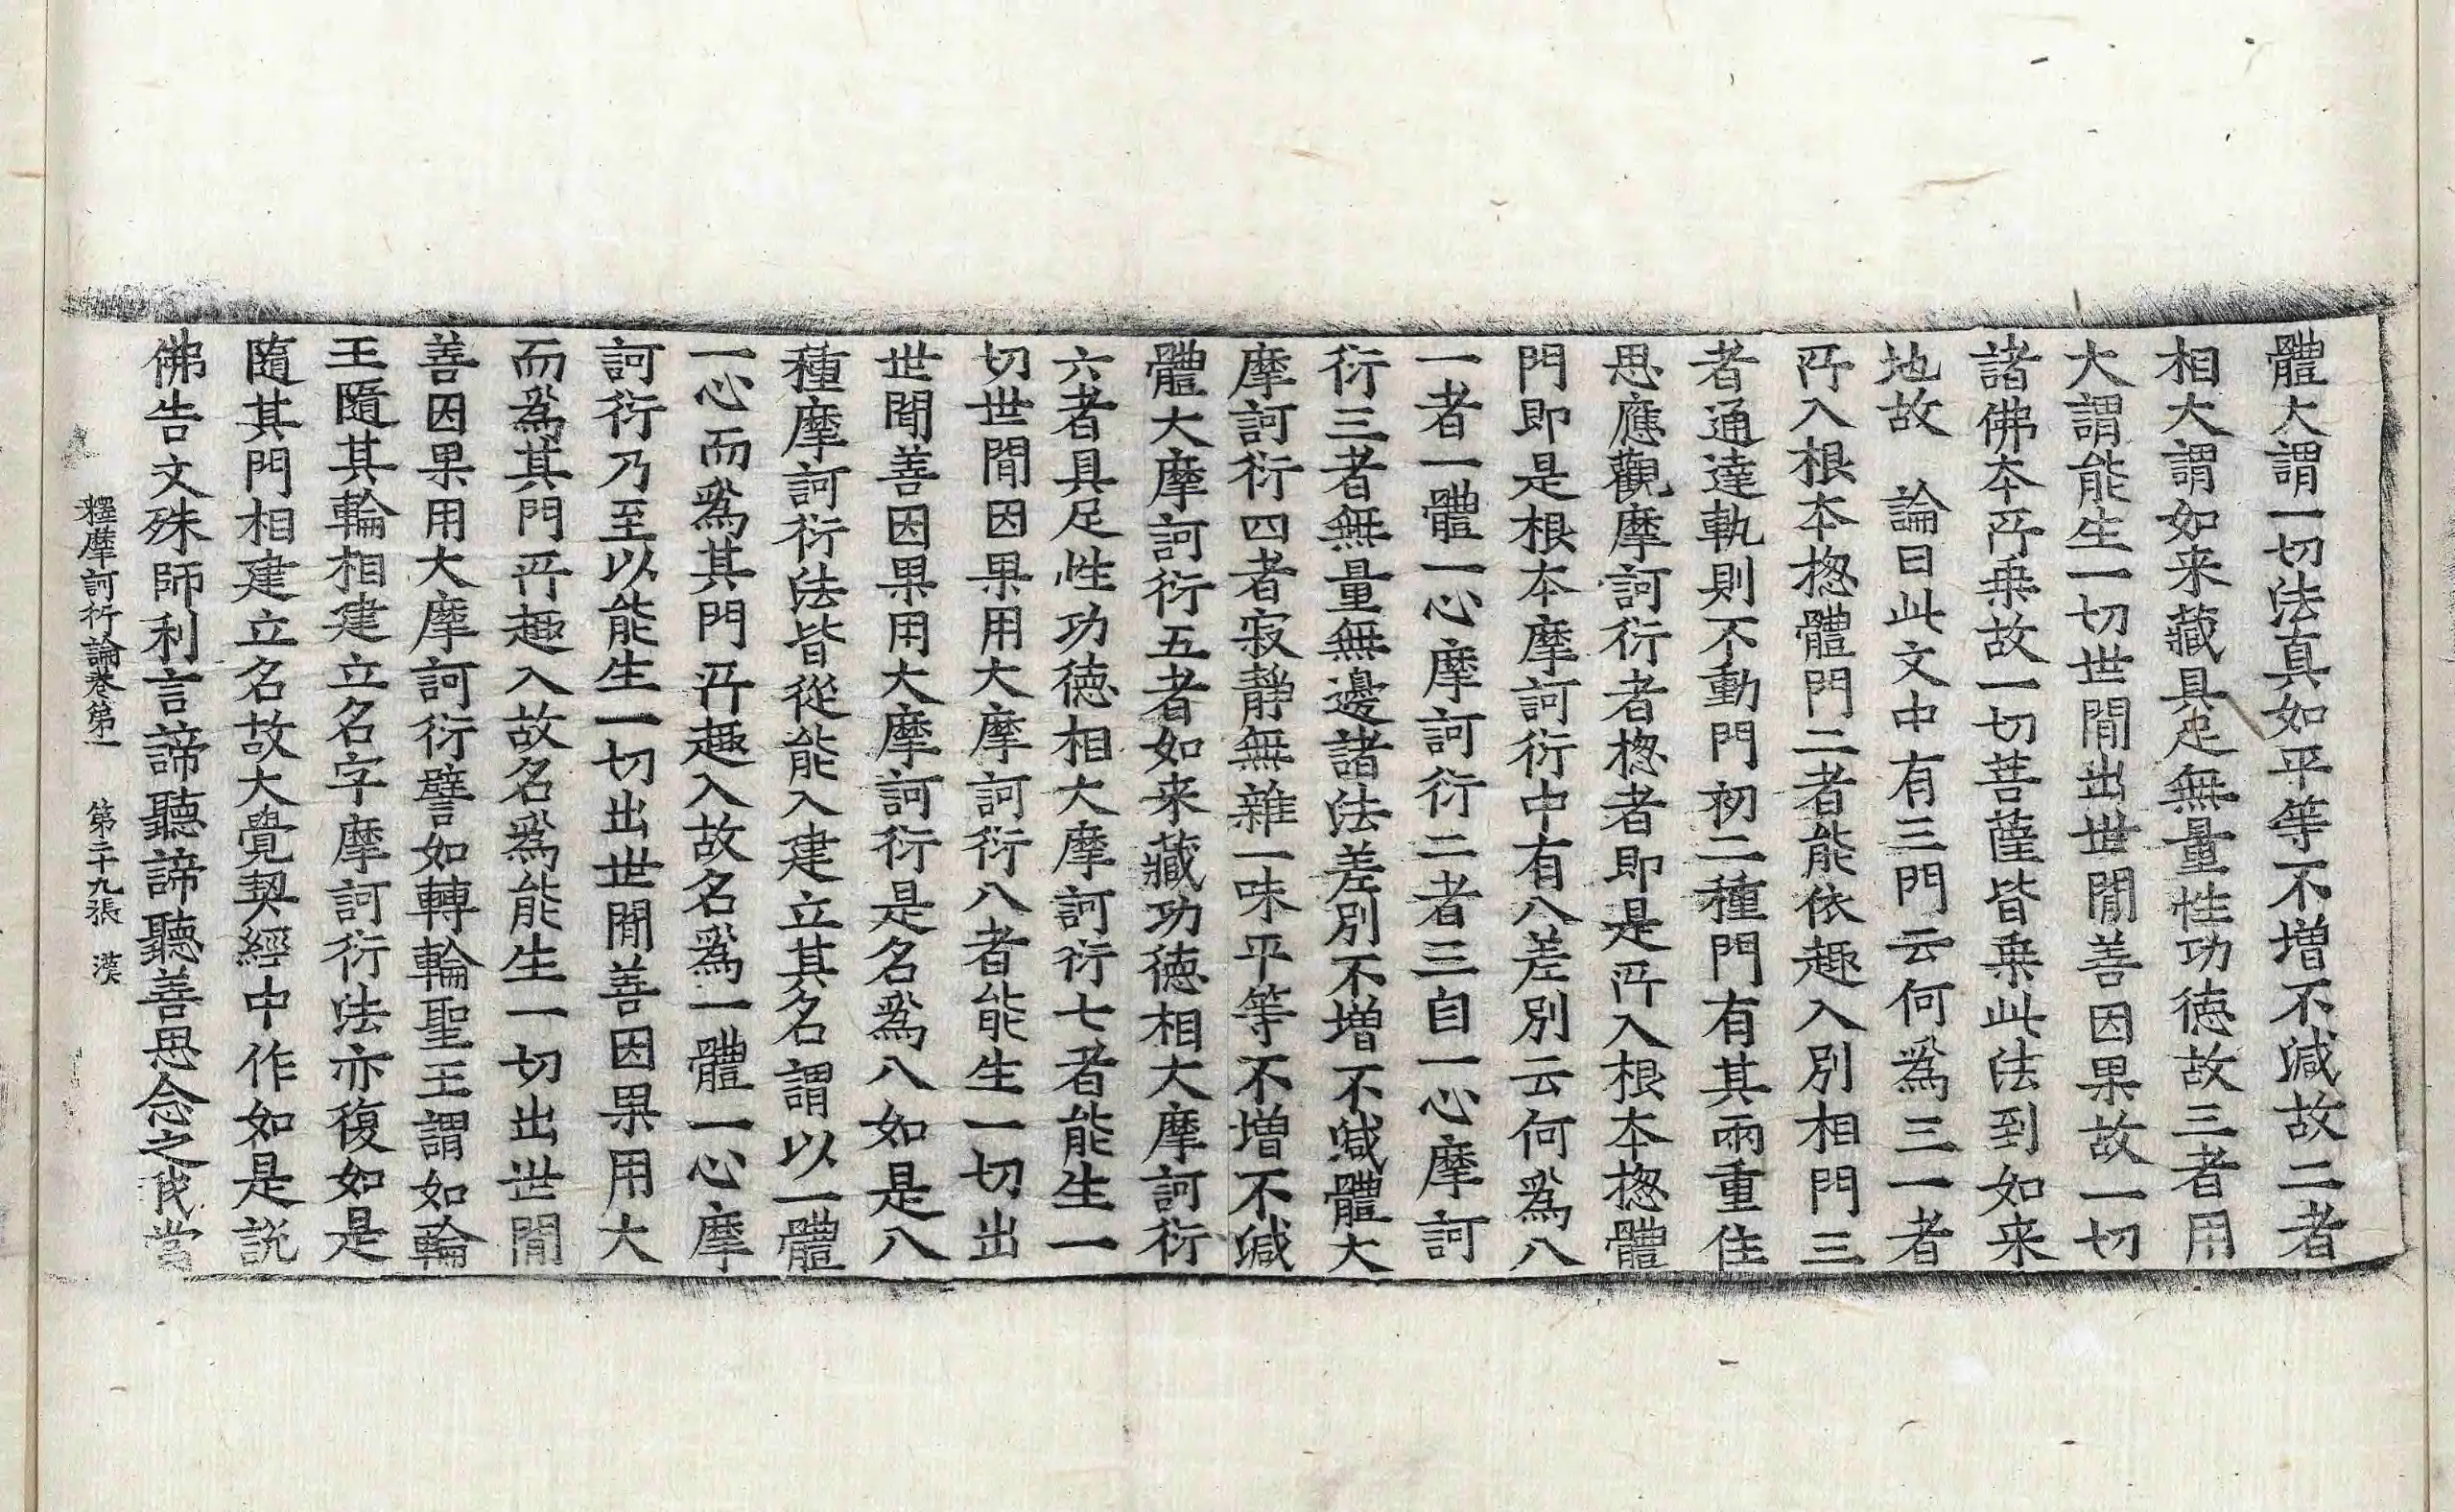 體大謂一切法真如平等不增不減故二者
相大謂如来藏具足無量性功德故三者用
大謂能生一切世閒出世閒善因果故一切
諸佛本所乗故一切菩薩皆乗此法到如来
地故　論曰此文中有三門云何爲三一者
所入根本揔體門二者能依趣入別相門三
者通達軌則不動門初二種門有其兩重住
思應觀摩訶衍者揔者即是所入根本揔體
門即是根本摩訶衍中有八差別云何爲八
一者一體一心摩訶衍二者三自一心摩訶
衍三者無量無邊諸法差別不增不減體大
摩訶衍四者寂靜無雜一味平等不增不減
體大摩訶衍五者如来藏功德相大摩訶衍
六者具足性功德相大摩訶衍七者能生一
切世閒因果用大摩訶衍八者能生一切出
世閒善因果用大摩訶衍是名爲八如是八
種摩訶衍法皆從能入建立其名謂以一體
一心而爲其門所趣入故名爲一體一心摩
訶衍乃至以能生一切出世閒善因果用大
而爲其門所趣入故名爲能生一切出世閒
善因果用大摩訶衍譬如轉輪聖王謂如輪
王隨其輪相建立名字摩訶衍法亦復如是
隨其門相建立名故大覺契經中作如是説
佛告文殊師利言諦聽諦聽善思念之我當
釋摩訶衍論卷第一　第二十九張　漢